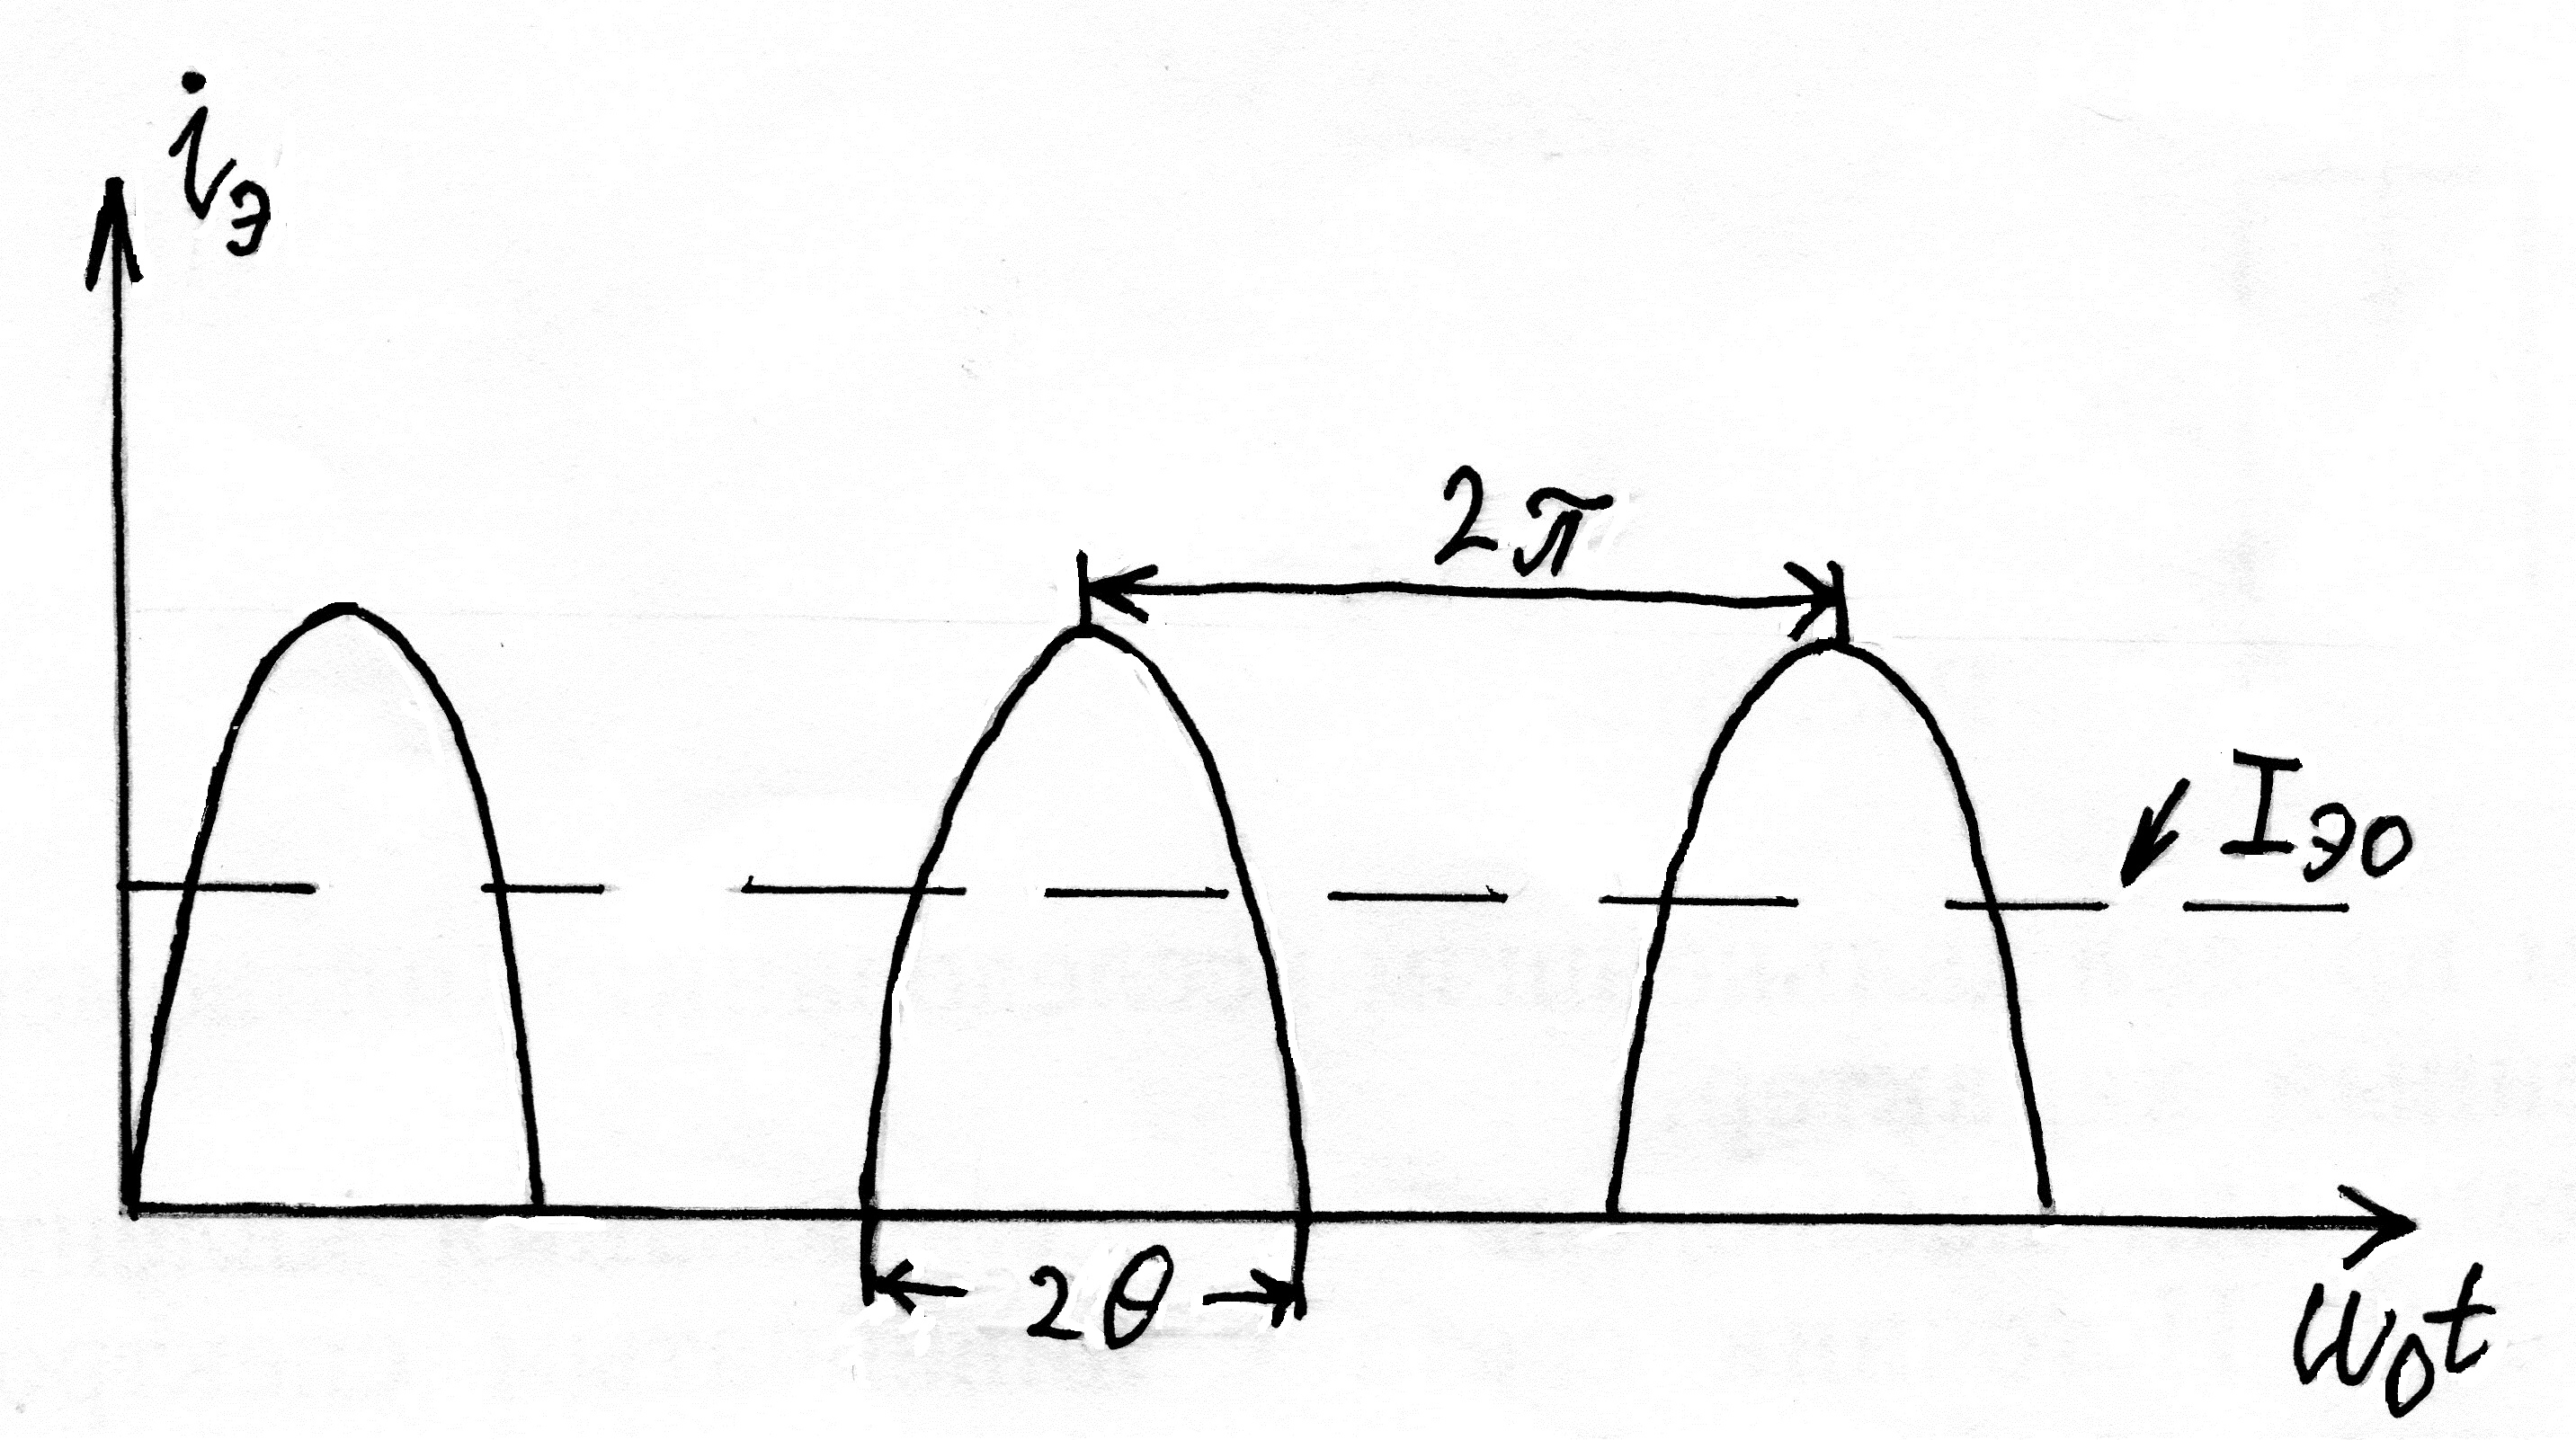 iэ
2π
Iэ0
2θ
ω₀t